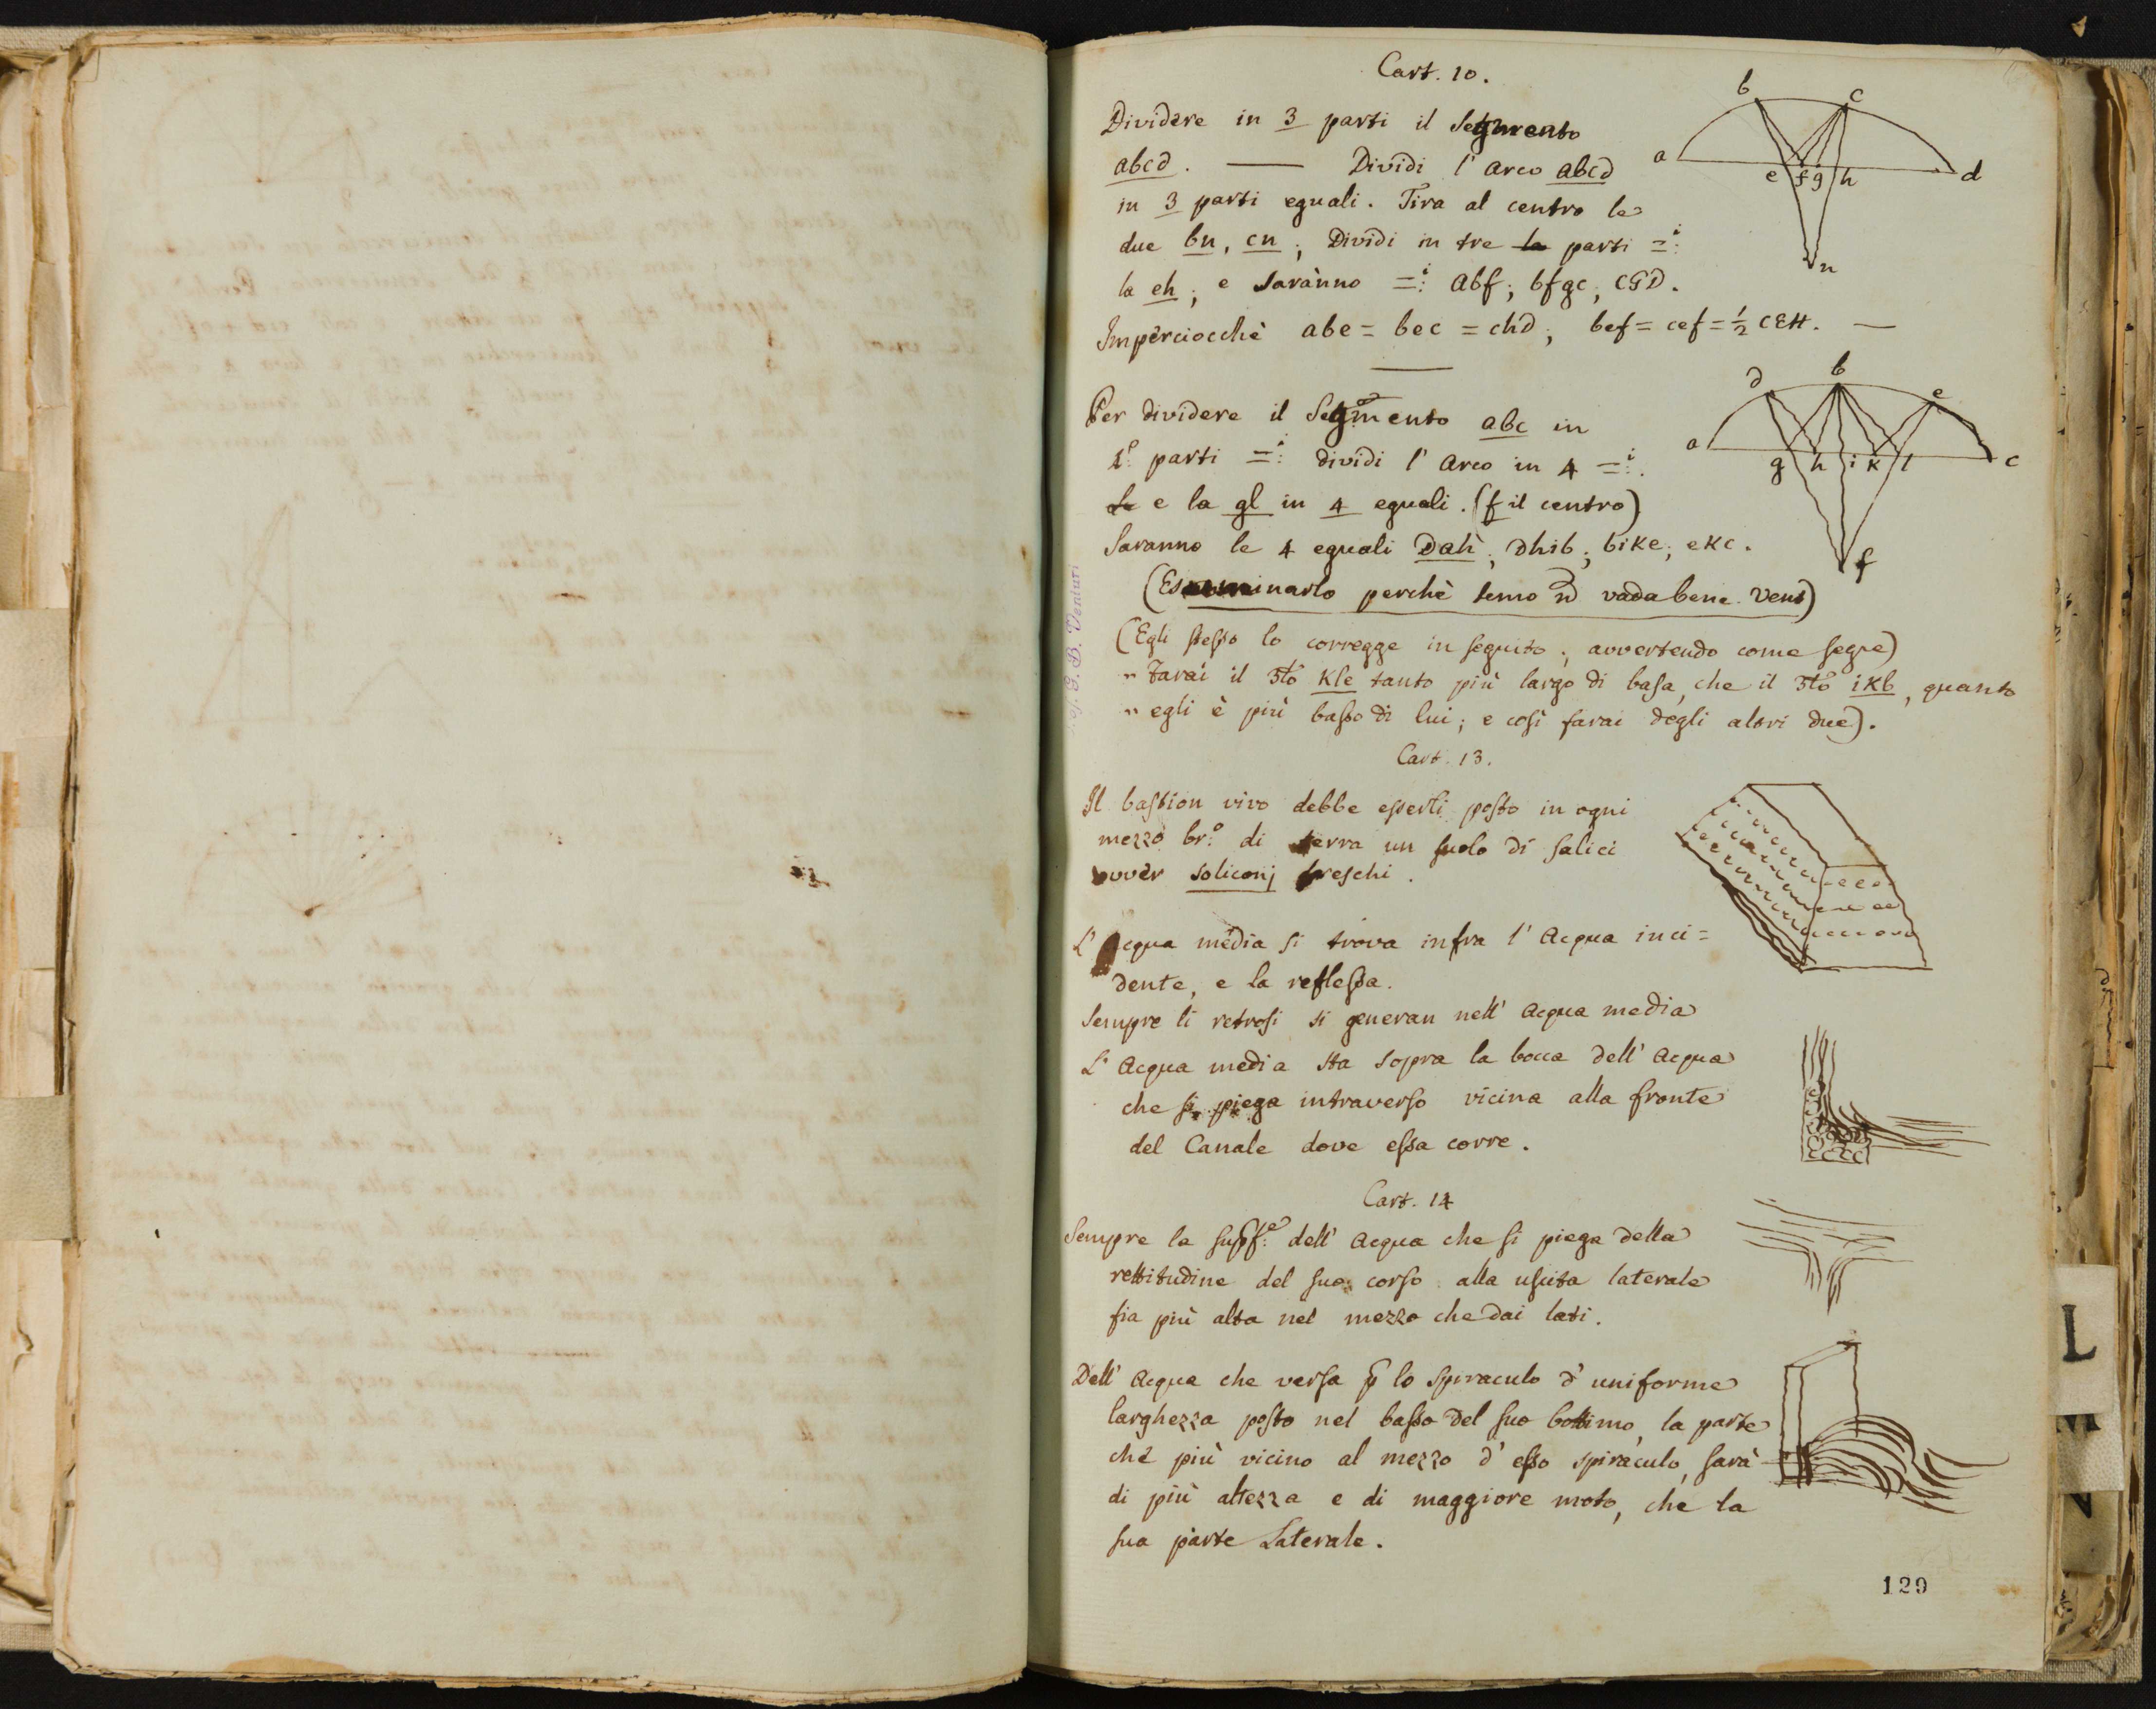 Cart. 10.
Dividere in 3 parti il Segmento
abcd. — Dividi l' arco abcd
in 3 parti eguali. Tira al centro le
due bn, cn; Dividi in tre parti =i:
la eh; e saranno =i: abf; bfgc, CGD.
Imperciocchè abe = bec = chd; bef = cef = 1/2 CEH. —
b c
a e f g h d
n
Per dividere il Segmento abc in
parti =i: dividi l' arco in 4 =i:.
e la gl in 4 eguali. (f il centro)
Saranno le 4 eguali Dah; Dhib; bike; ekc.
(Esaminarlo perchè temo vada bene. Vent)
d b e
a g h i k l c
f
(Egli stesso lo corregge in seguito; avvertendo come segue)
" Farai il 3lo kle tanto più largo di basa, che il 3lo ikb, quanto
" egli è più basso di lui; e così farai degli altri due).
Cart. 13.
Il bastion vivo debbe esserli posto in ogni
mezzo br.o di terra un suolo di salici
ovver saliconj freschi.
L' Acqua media si trova infra l' acqua inci=
dente, e la reflessa.
Sempre li retrosi si generan nell' acqua media
L' acqua media sta sopra la bocca dell' acqua
che si piega intraverso vicina alla fronte
del Canale dove essa corre.
Cart. 14
Sempre la supf.e dell' acqua che si piega della
rettitudine del suo corso alla uscita laterale
fia più alta nel mezzo che dai lati.
Dell' acqua che versa p lo spiraculo d' uniforme
larghezza posto nel basso del suo bottino, la parte
che più vicino al mezzo d' esso spiraculo, sarà
di più altezza e di maggiore moto, che la
sua parte Laterale.
129
G. B. Venturi
L
M